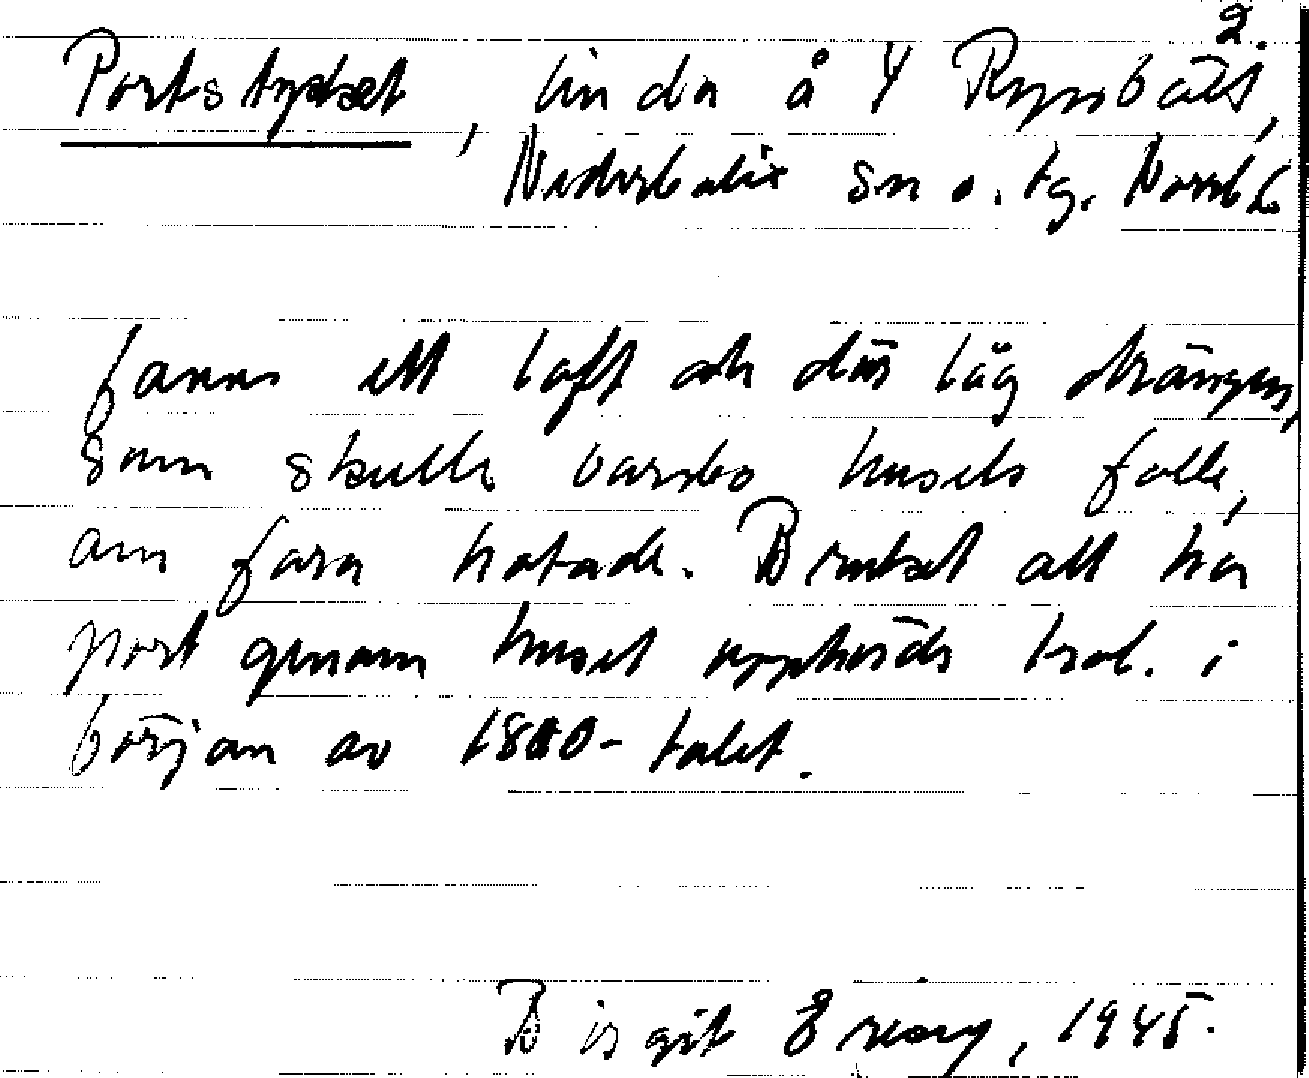 2.
Portstycket, linda å Y Rynbäck,
Nederkalix sn o. tg. Norrb L
fanns ett loft och där låg drängen,
som skulle varsko husets folk,
om fara hotade. Bruket att ha
port genom huset upphörde trol. i
början av 1800-talet.
Birgit Ericy, 1945.